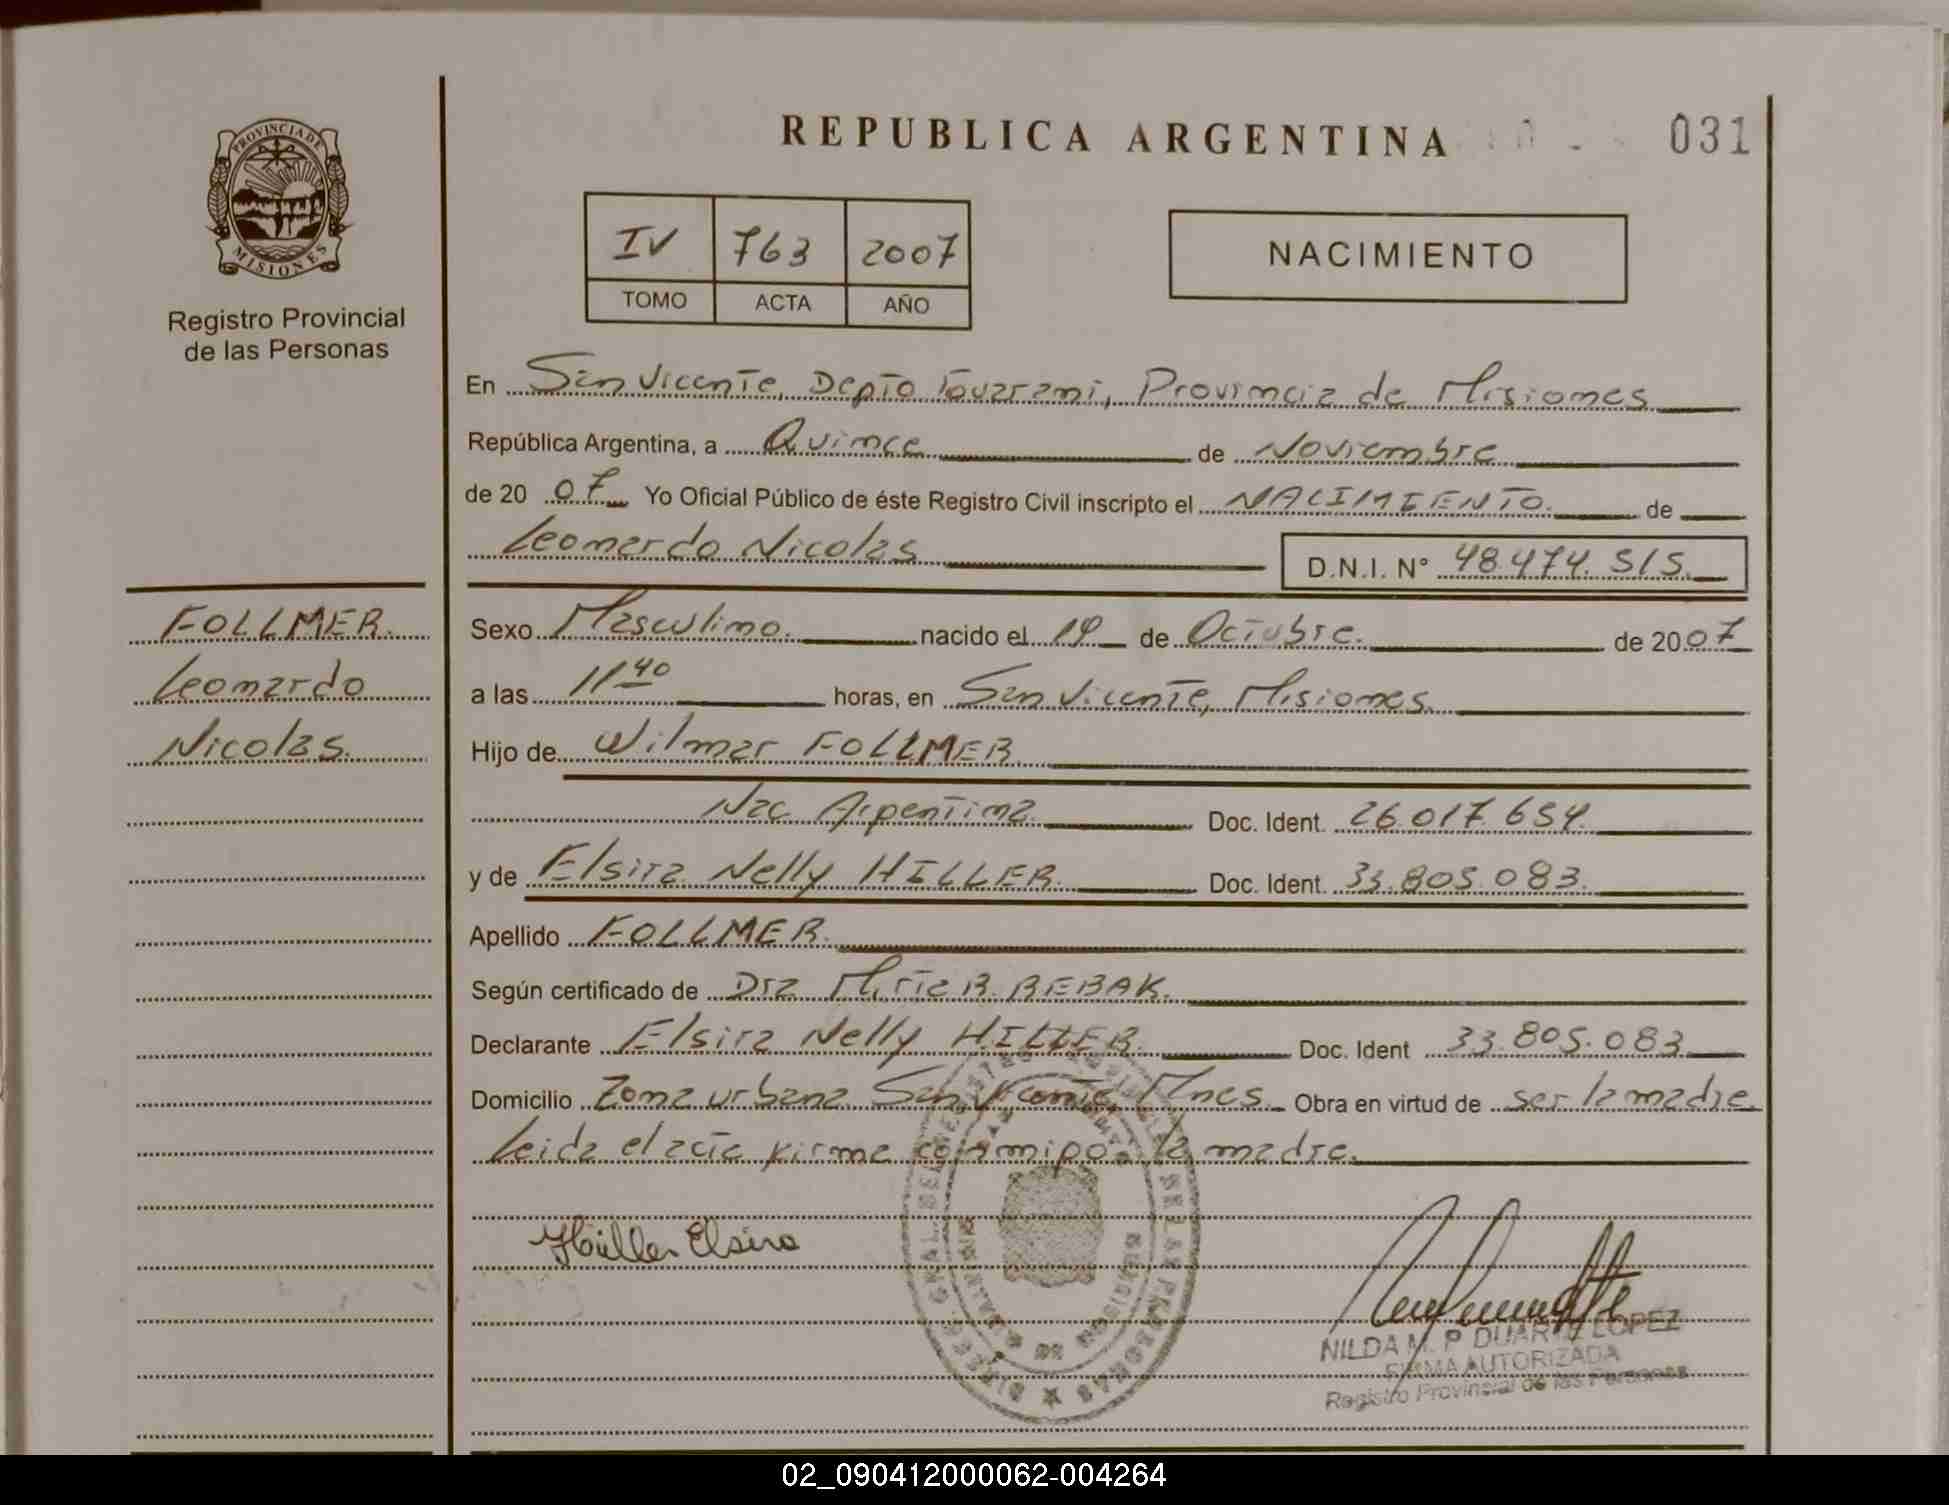 REPUBLICA ARGENTINA
031
PROVINCIA DE
MISIONES
Registro Provincial
de las Personas
IV 763 2007
TOMO ACTA AÑO
NACIMIENTO
En San Vicente, Depto Guarani, Provincia de Misiones
República Argentina, a Quince de Noviembre
de 20 07 Yo Oficial Público de éste Registro Civil inscripto el NACIMIENTO de
Leonardo Nicolas
D.N.I. N° 48.474.515.
FOLLMER.
Leonardo
Nicolas.
Sexo Masculino. nacido el 19 de Octubre. de 2007
a las 11 40 horas, en San Vicente, Misiones.
Hijo de Wilmar FOLLMER.
Nac Argentina. Doc. Ident. 26.017.654.
y de Elsira Nelly HILLER. Doc. Ident. 33.805.083.
Apellido FOLLMER.
Según certificado de Dra Mirta B. BEBAK.
Declarante Elsira Nelly HILLER. Doc. Ident 33.805.083
Domicilio Zona urbana San Vicente, Mnes. Obra en virtud de ser la madre.
Leida el acta firma conmigo la madre.
Hüller Elsira
NILDA M. P DUARTE LOPEZ
FIRMA AUTORIZADA
Registro Provincial de las Personas
02_090412000062-004264